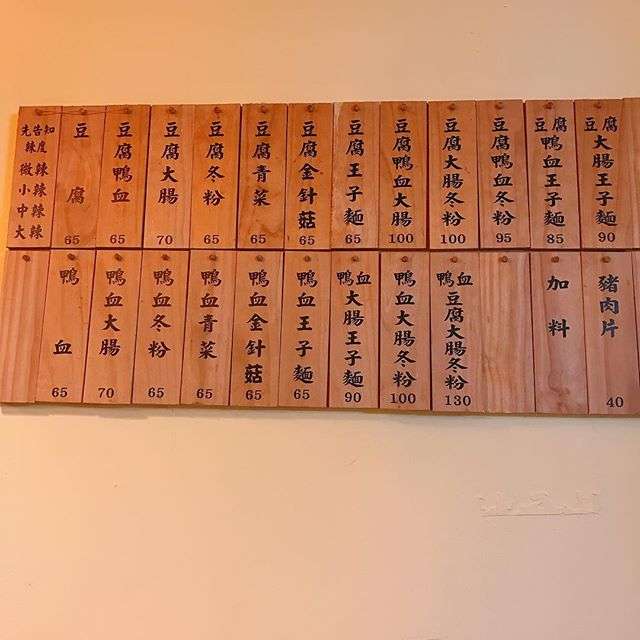 先告知
辣度
微辣
小辣
中辣
大辣
豆腐
65
豆腐鴨血
65
豆腐大腸
70
豆腐冬粉
65
豆腐青菜
65
豆腐金針菇
65
豆腐王子麵
65
豆腐鴨血大腸
100
豆腐大腸冬粉
100
豆腐鴨血冬粉
95
豆腐鴨血王子麵
85
豆腐大腸王子麵
90
鴨血
65
鴨血大腸
70
鴨血冬粉
65
鴨血青菜
65
鴨血金針菇
65
鴨血王子麵
65
鴨血大腸王子麵
90
鴨血大腸冬粉
100
鴨血豆腐大腸冬粉
130
加料
豬肉片
40